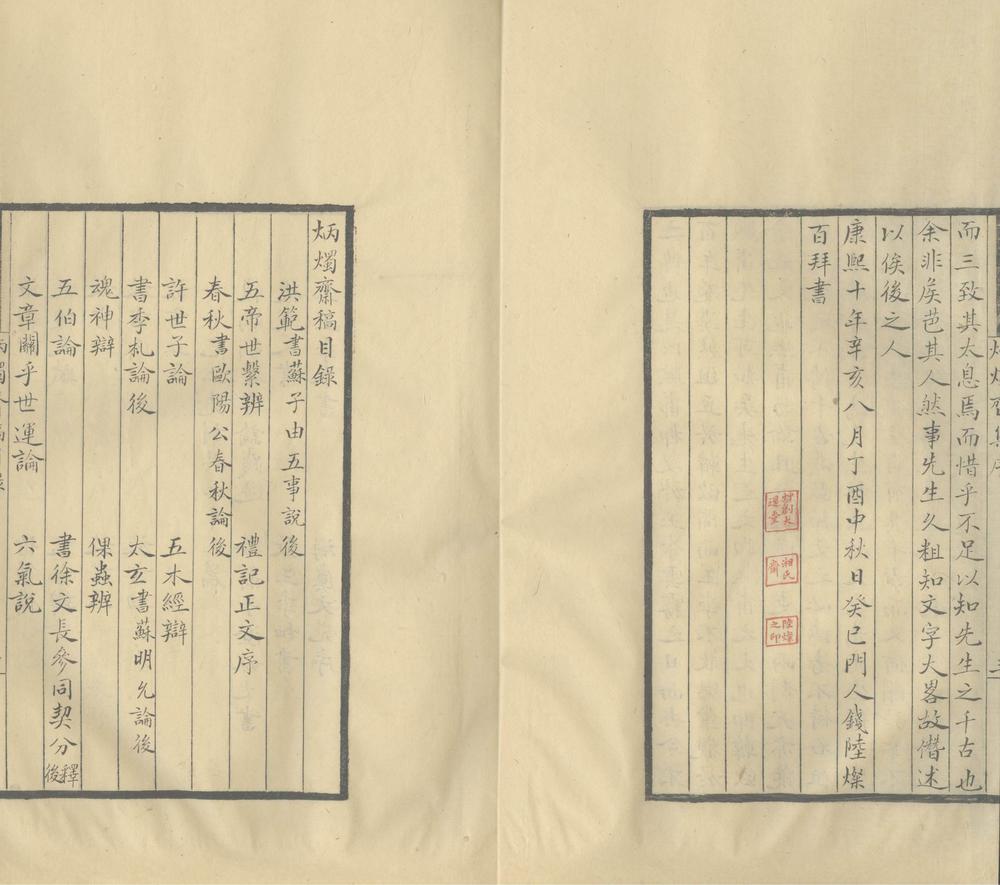 而三致其太息焉而惜乎不足以知先生之千古也
余非侯芭其人然事先生久粗知文字大畧故僭述
以俟後之人
康熙十年辛亥八月丁酉中秋日癸巳門人錢陸燦
百拜書
湘民
齋
陸燦
之印
炳燭齋稿目錄
洪範書蘇子由五事說後
五帝世繫辨 禮記正文序
春秋書歐陽公春秋論後
許世子論 五木經辯
書季札論後 太玄書蘇明允論後
魂神辯 倮蟲辨
五伯論 書徐文長參同契分釋後
文章關乎世運論 六氣說